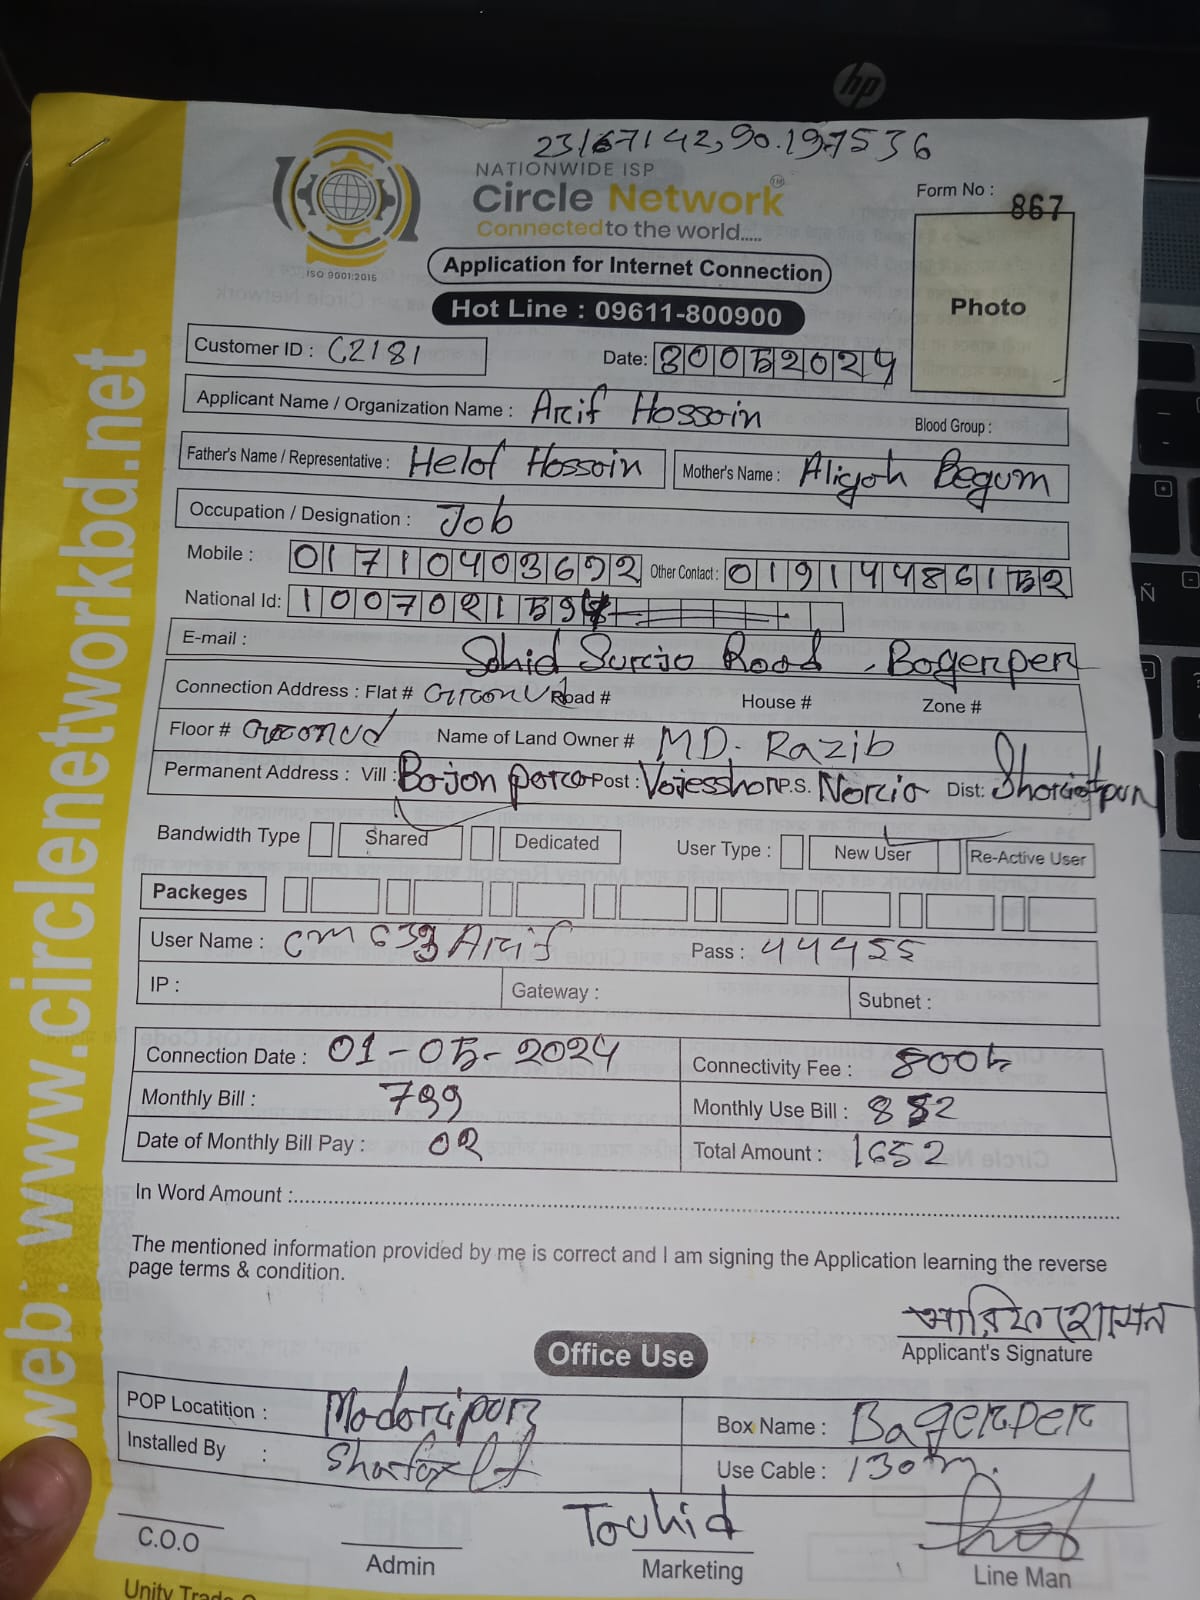 23/67142,90.197536
NATIONWIDE ISP
Circle Network TM
Connected to the world.....
ISO 9001:2015
Form No : 867
Application for Internet Connection
Photo
Hot Line : 09611-800900
Customer ID : C2181
Date: 30052024
Applicant Name / Organization Name : Arif Hossain Blood Group :
Father's Name / Representative : Helof Hossain Mother's Name : Aliyah Begum
Occupation / Designation : Job
Mobile : 01710403692 Other Contact : 01914486152
National Id: 100702159
E-mail :
Sohid Surcjo Road, Bagerper
Connection Address : Flat # Road # House # Zone #
Floor # Name of Land Owner # MD. Razib
Permanent Address : Vill : Bojon Post : P.S. Noria Dist:
Bandwidth Type Shared Dedicated User Type : New User Re-Active User
Packeges
User Name : Arif Pass : 44455
IP : Gateway : Subnet :
Connection Date : 01-05-2024 Connectivity Fee :
Monthly Bill : 799 Monthly Use Bill : 852
Date of Monthly Bill Pay : 02 Total Amount : 1652
In Word Amount :
The mentioned information provided by me is correct and I am signing the Application learning the reverse
page terms & condition.
আরিফ হোসেন
Applicant's Signature
Office Use
POP Locatition : Madaripur Box Name : Bagerper
Installed By : Use Cable : 130m.
Touhid
C.O.O Admin Marketing Line Man
web: www.circlenetworkbd.net